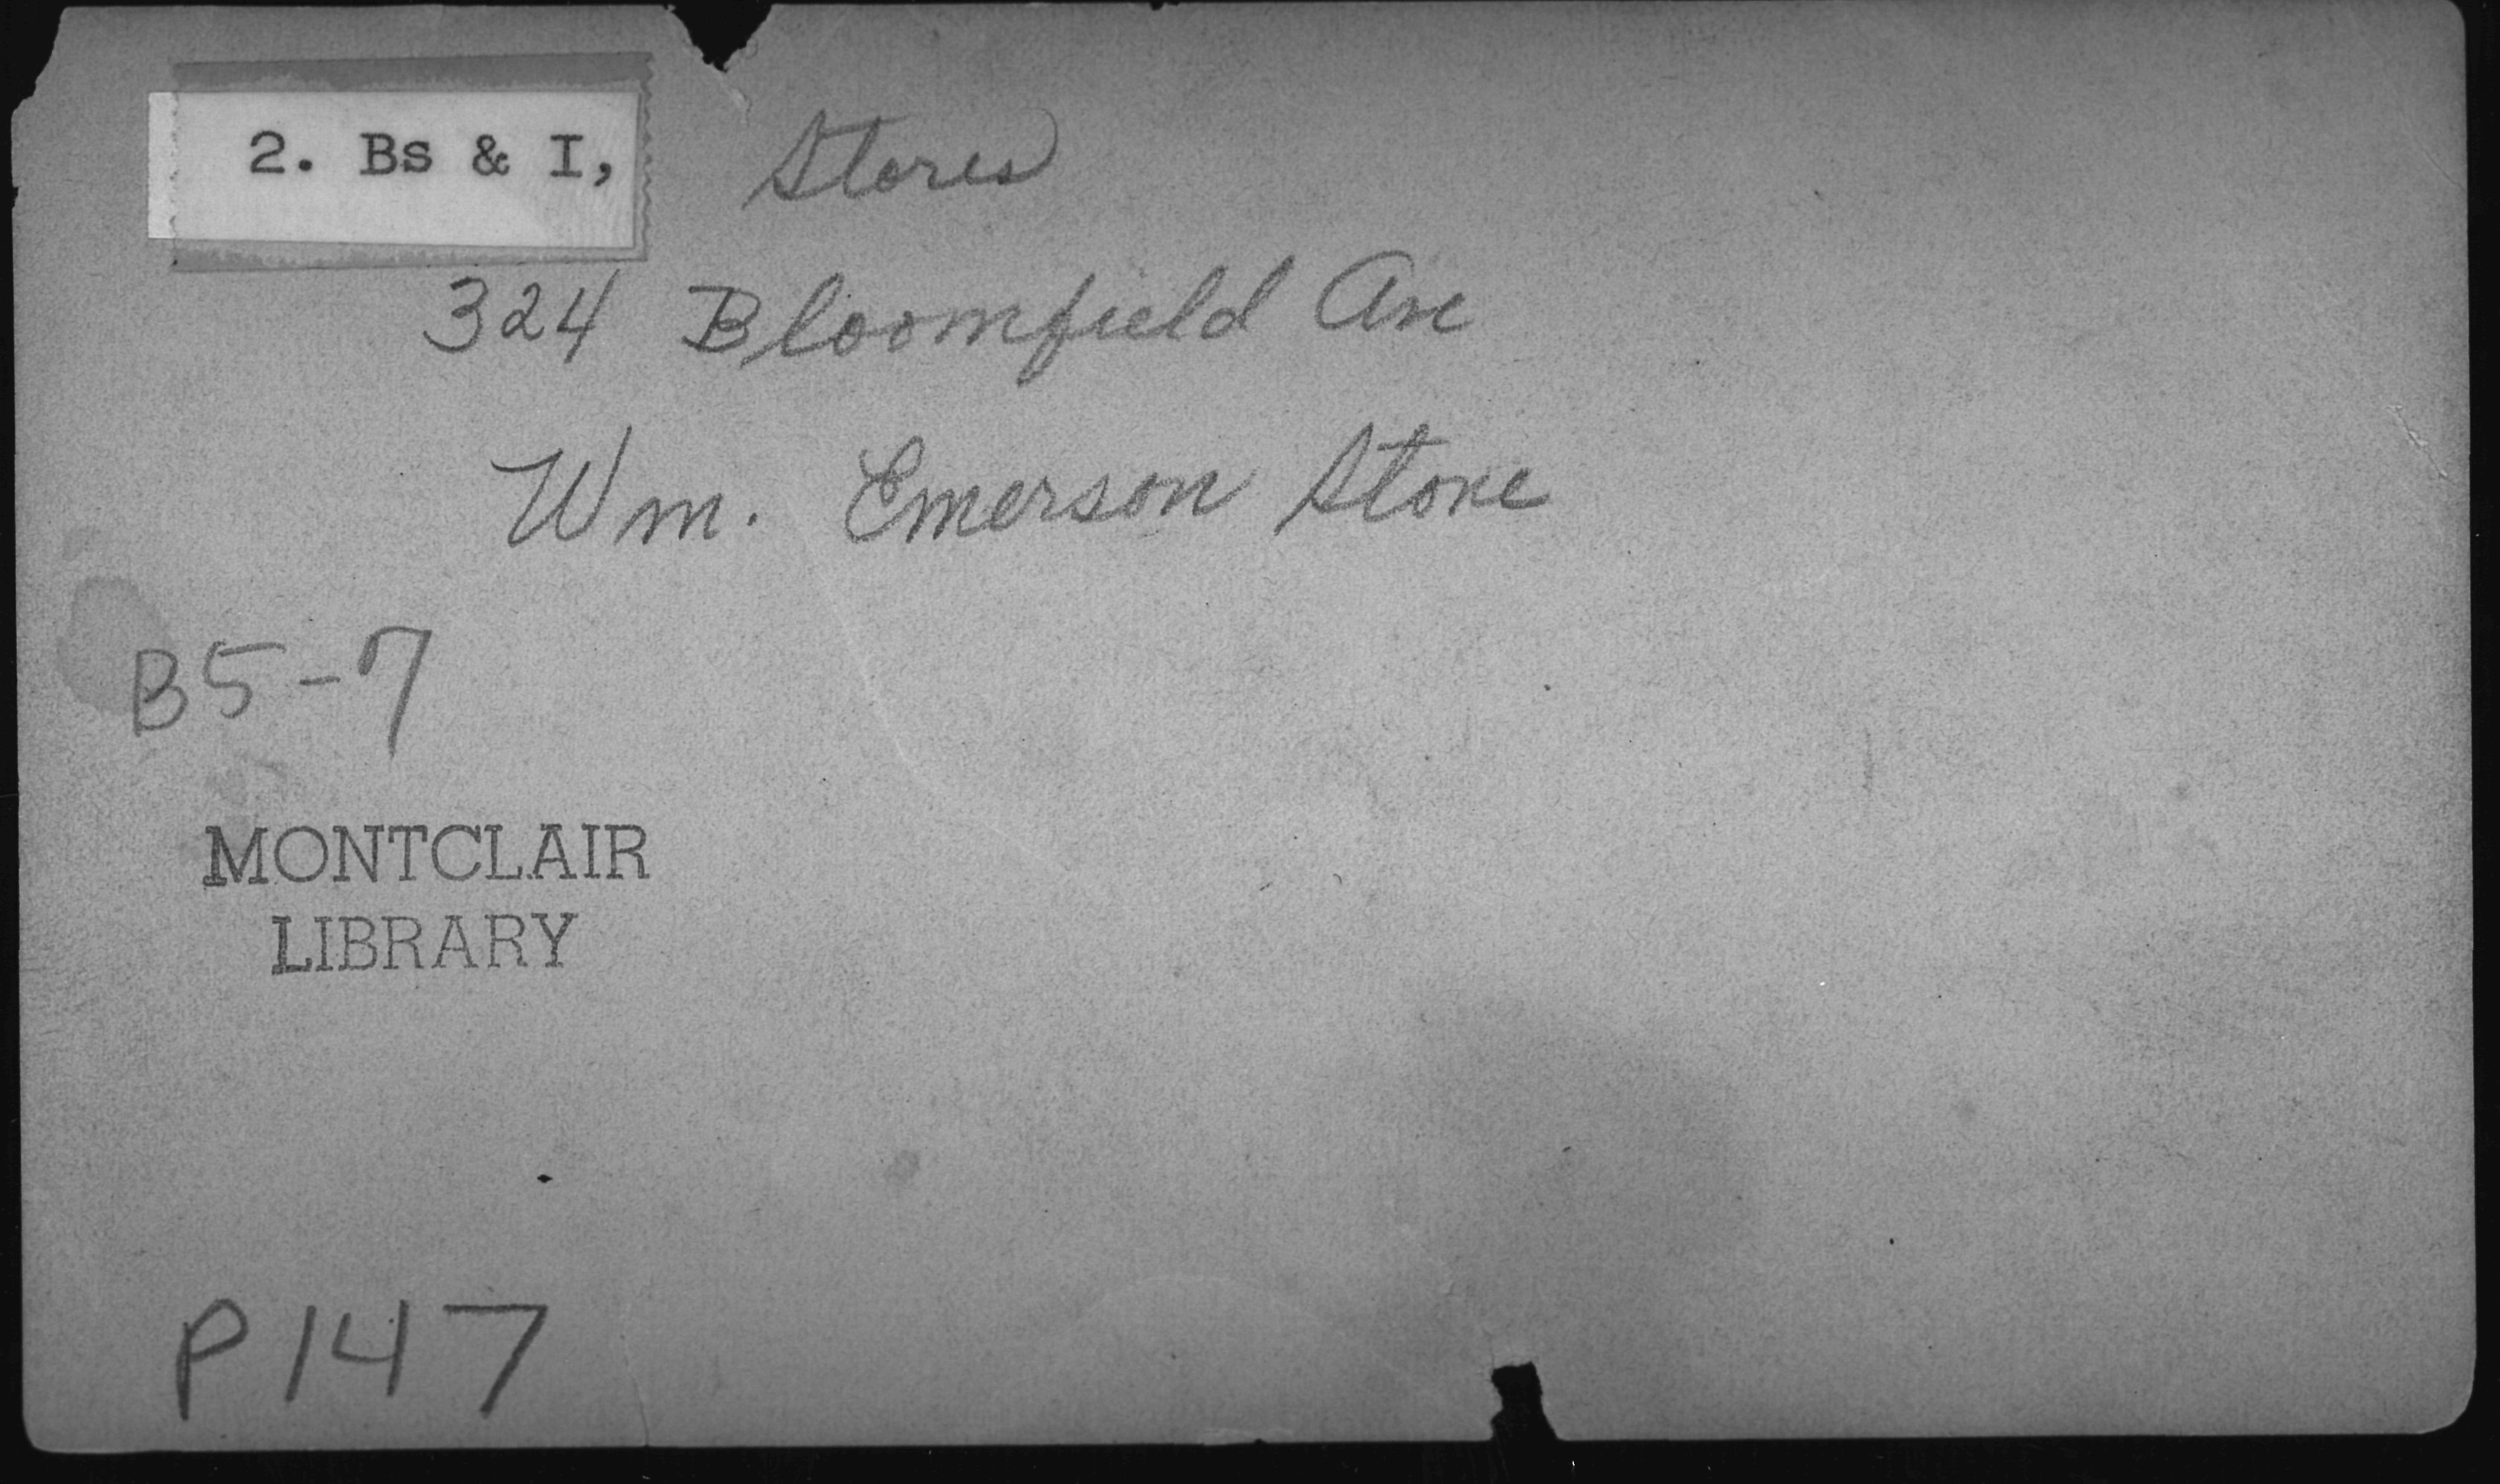 2. Bs & I, Stores
324 Bloomfield Ave
Wm. Emerson Stone
B5-7
MONTCLAIR
LIBRARY
P147